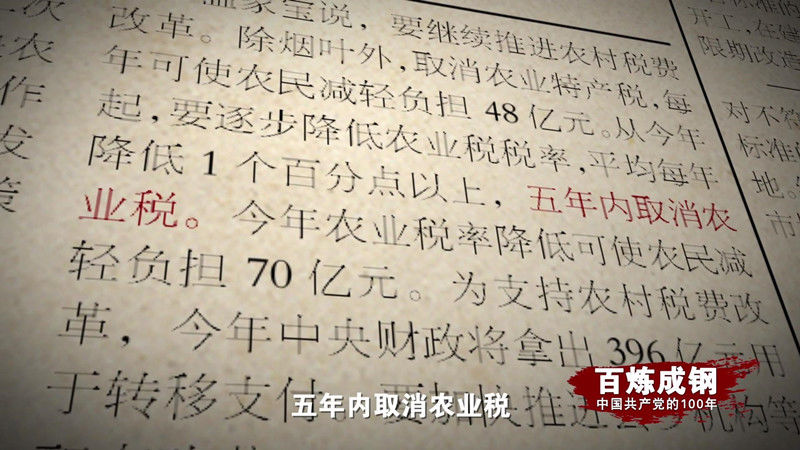 温家宝说，要继续推进农村税费
改革。除烟叶外，取消农业特产税，每
年可使农民减轻负担 48 亿元。从今年
起，要逐步降低农业税税率，平均每年
降低 1 个百分点以上，五年内取消农
业税。今年农业税率降低可使农民减
轻负担 70 亿元。为支持农村税费改
革，今年中央财政将拿出 396 亿元用
于转移支付。要加快推进
机构等
次
农
作
发
策
开工，在建
限期改造
对不
标准
地。
市
五年内取消农业税
百炼成钢
中国共产党的100年